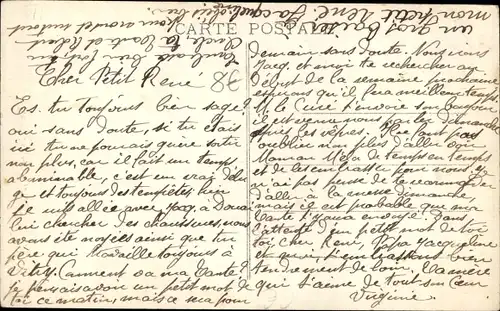 CARTE POSTALE
8€
Cher Petit René
Es-tu toujours bien sage?
oui sans doute, si tu étais
ici tu ne pourrais guère sortir
non plus, car il fait un temps
abominable, c'est un vrai
et toujours des tempêtes, hier
je suis allée avec Jacq. à Douai
lui chercher des chaussures, nous
avons été noyées ainsi que ton
père qui travaille toujours à
Vitry. Comment va ma tante?
je pensais avoir un petit mot de
toi ce matin, mais ce sera pour
demain sans doute. Nous irons
Jacq. et moi te rechercher au
début de la semaine prochaine
espérons qu'il fera meilleur temps.
M. le Curé t'envoie son bonjour
il est venu nous parler dimanche
après les vêpres. Il ne faut pas
oublier non plus d'aller voir
Maman de temps en temps
et de l'embrasser pour nous. Je
n'ai pas besoin de te recommander
d'aller à la messe dimanche,
mais il est probable que ma
tante t'y aura envoyé. Dans
l'attente d'un petit mot de toi
toi, cher René, Papa Jacqueline
et moi, t'embrassons bien
tendrement de loin. Ta mère
qui t'aime de tout son cœur
Virginie
un gros baiser
mon petit René. Jacqueline